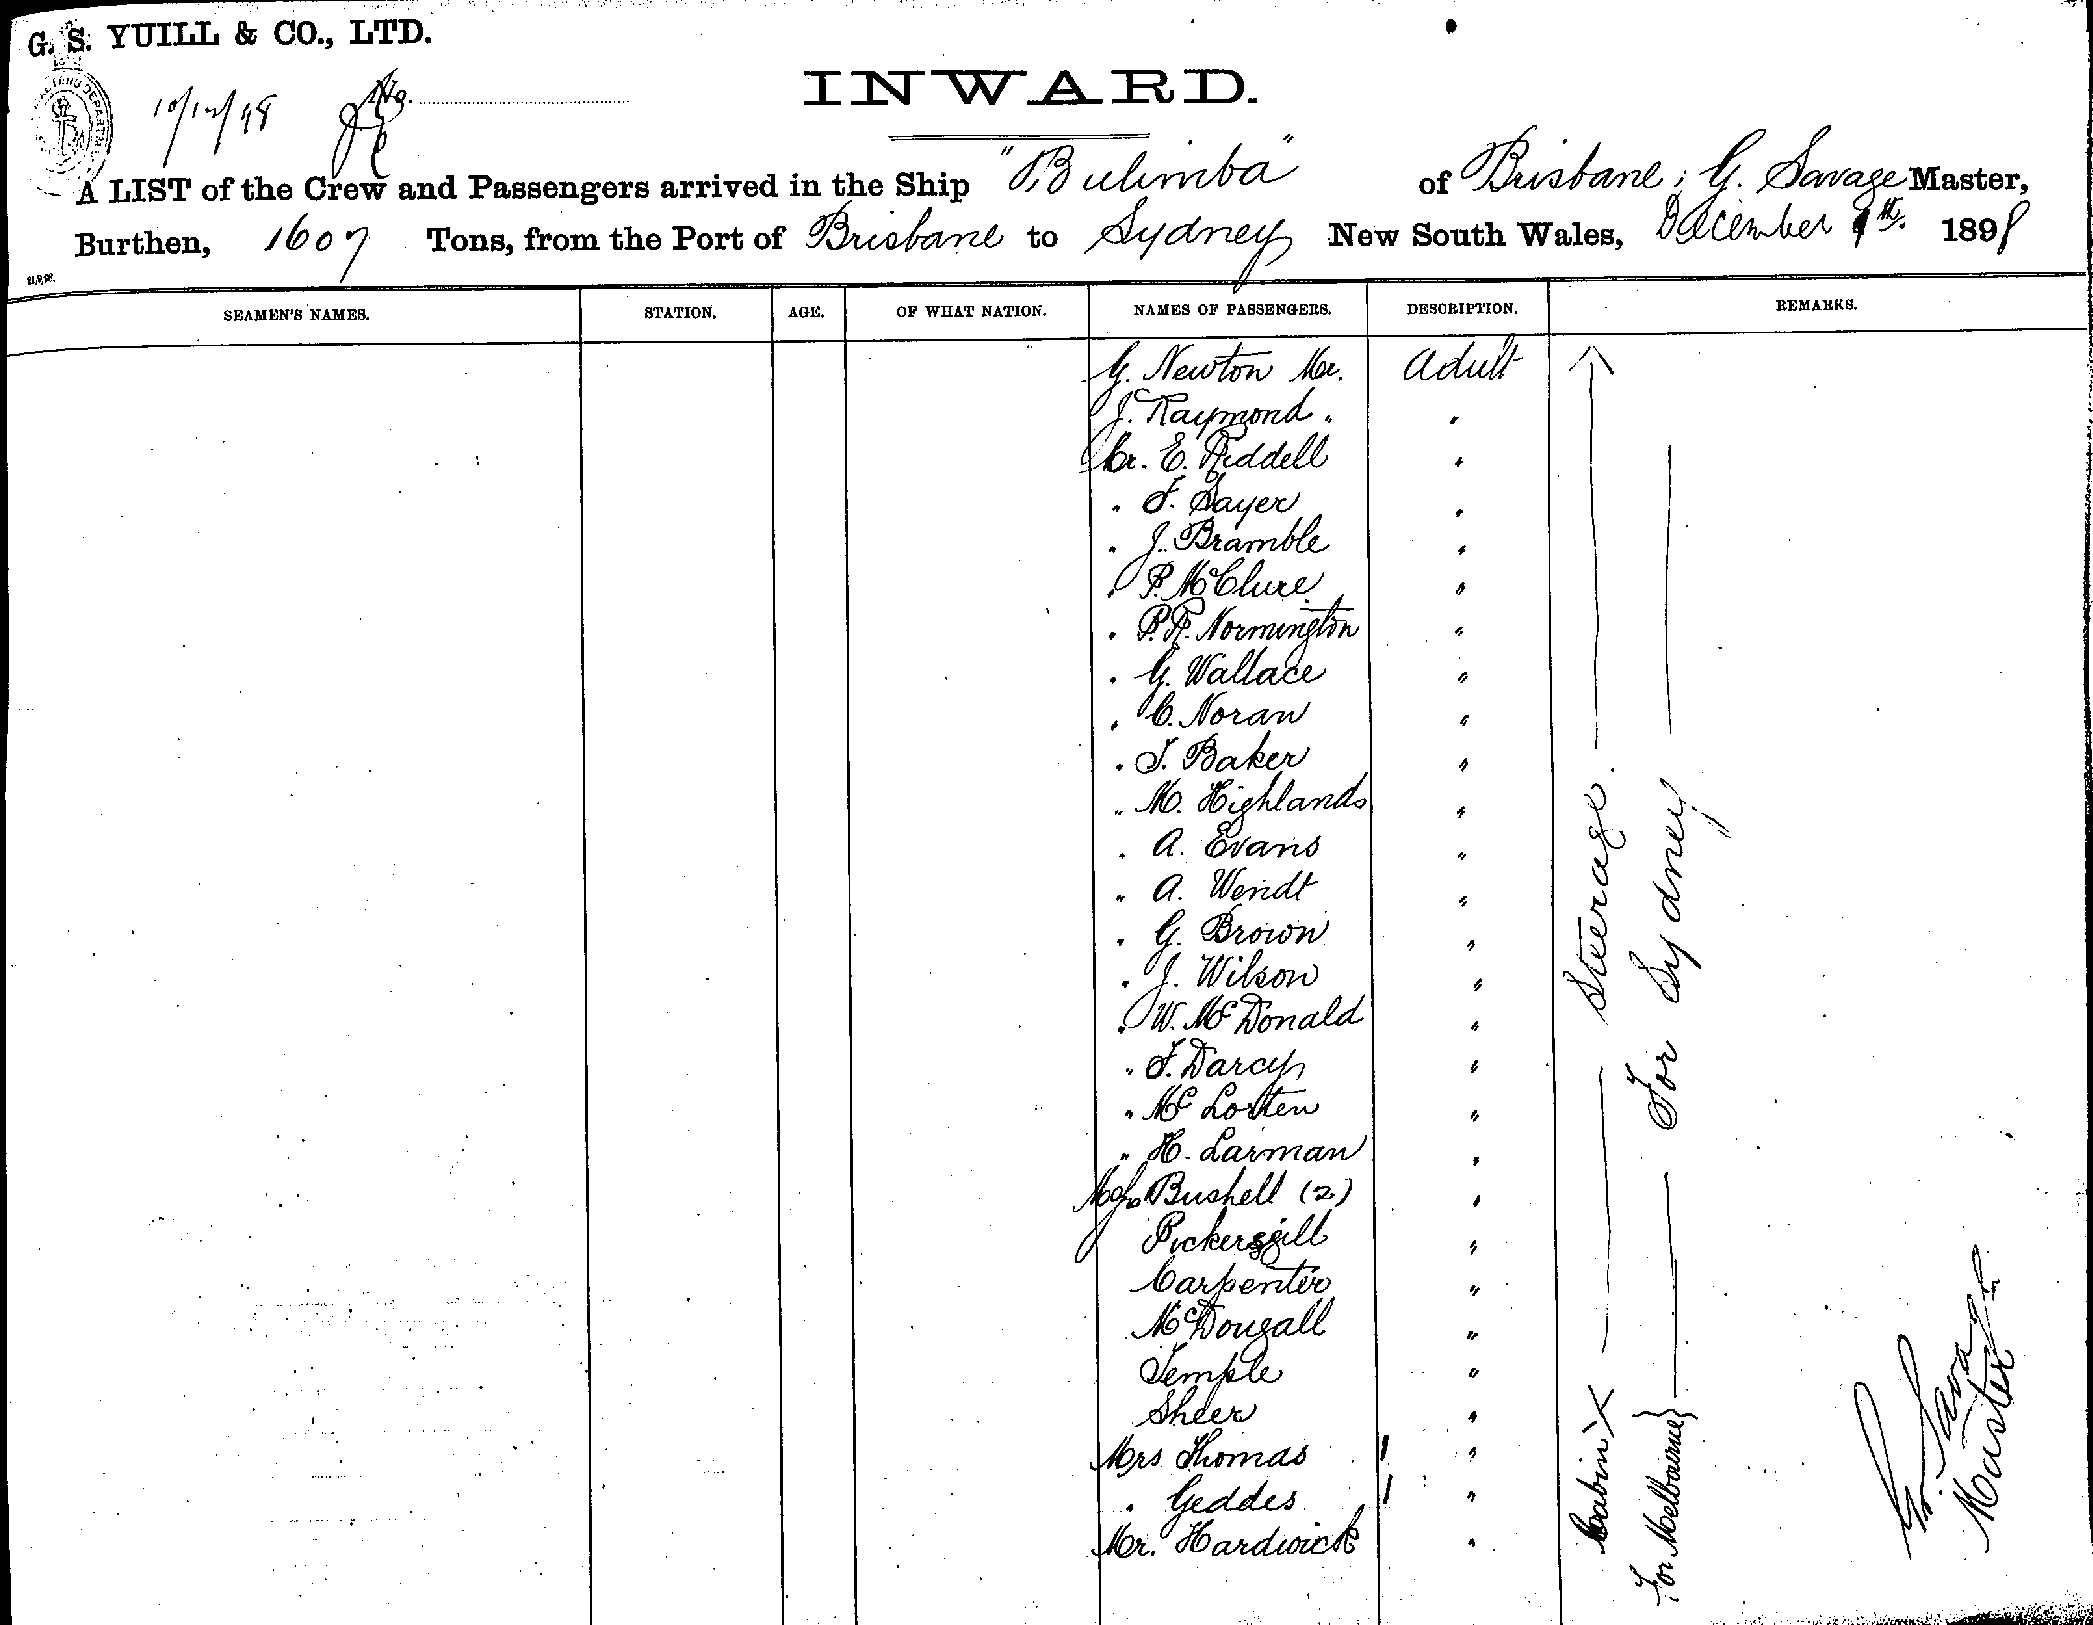 G. S. YUILL & CO., LTD.
10/12/98
INWARD.
A LIST of the Crew and Passengers arrived in the Ship "Bulimba" of Brisbane; G. Savage Master,
Burthen, 1607 Tons, from the Port of Brisbane to Sydney New South Wales, December 9th. 1898
SEAMEN'S NAMES. STATION. AGE. OF WHAT NATION. NAMES OF PASSENGERS. DESCRIPTION. REMARKS.
G. Newton Mr. Adult
J. Raymond " "
Mr. E. Riddell "
" F. Sayer "
" J. Bramble "
" P. McClure "
" P. R. Normington "
" G. Wallace "
" C. Noran "
" T. Baker "
" M. Highlands "
" A. Evans "
" A. Wendt "
" G. Brown "
" J. Wilson "
" W. McDonald "
" F. Darcy "
" Mc Lorten "
" H. Larman "
Bushell (2) "
Pickersgill "
Carpenter "
McDougall "
Temple "
Sheer "
Mrs Thomas 1 "
" Geddes 1 "
Mr. Hardwick "
Steerage
For Sydney
Cabin
For Melbourne
G. Savage
Master